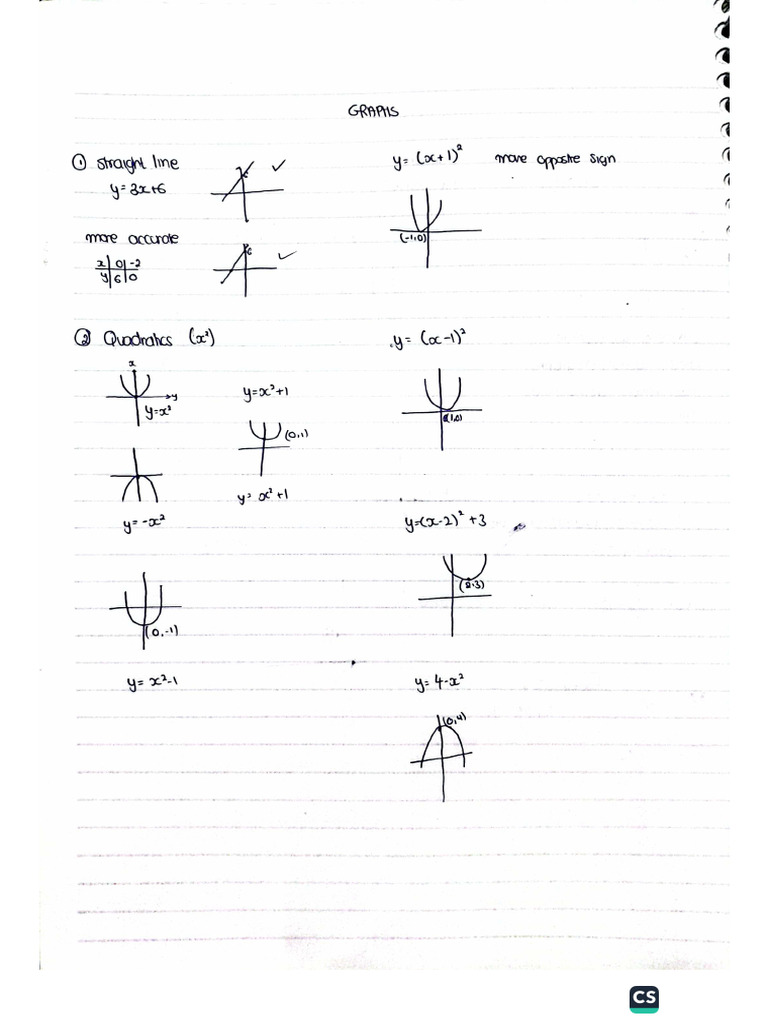 GRAPHS
① straight line
y = 3x+6
6 ✓
more accurate
x | 0 | -2
y | 6 | 0
6 ✓
② Quadratics (x²)
x
y
y=x²
y = -x²
(0,-1)
y = x²-1
y=x²+1
(0,1)
y= x²+1
y = (x+1)² move opposite sign
(-1,0)
y = (x-1)²
(1,0)
y=(x-2)² +3
(2,3)
y= 4-x²
(0,4)
CS